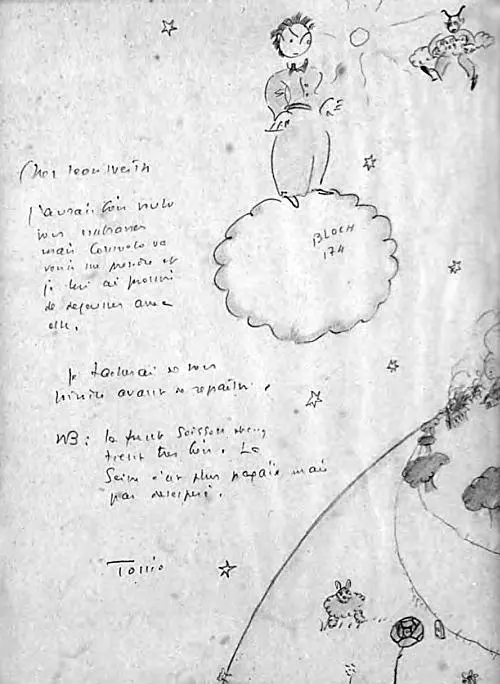 Cher Léon Werth
J'aurais bien voulu
vous embrasser
mais Consuelo va
venir me prendre et
je lui ai promis
de déjeuner avec
elle.
Je tacherai de vous
avant de repartir.
NB : le front Soissons
tient très bien. La
Seine c'est plus pagaïe mais
pas désespéré.
Tonio
BLOCH
174